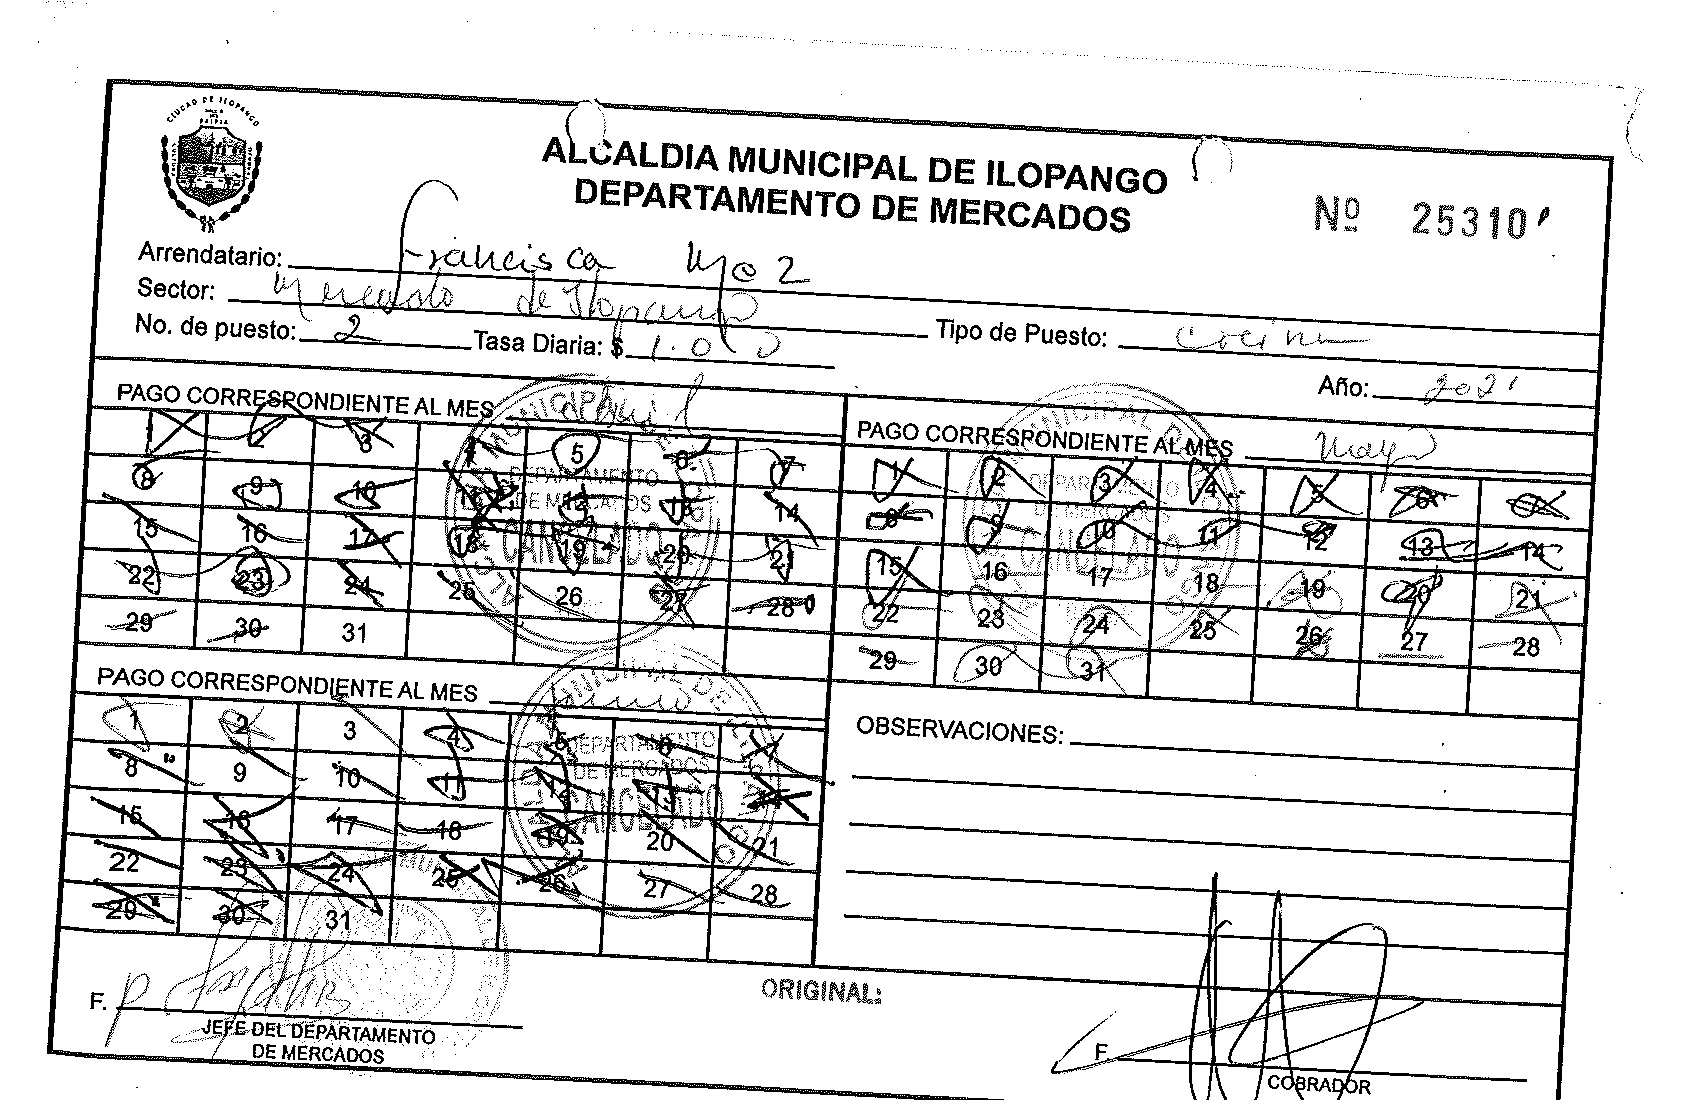 CIUDAD DE ILOPANGO
ALCALDIA MUNICIPAL DE ILOPANGO
DEPARTAMENTO DE MERCADOS
Nº 25310
Arrendatario: Francisca
Sector: Mercado de Ilopango
No. de puesto: 2 Tasa Diaria: $ 1.00 Tipo de Puesto: Cocina
Año: 2021
PAGO CORRESPONDIENTE AL MES Abril
1 2 3 4 5 6 7
8 9 10 11 12 13 14
15 16 17 18 19 20 21
22 23 24 25 26 27 28
29 30 31
DEPARTAMENTO
DE MERCADOS
CANCELADO
PAGO CORRESPONDIENTE AL MES Mayo
1 2 3 4 5 6 7
8 9 10 11 12 13 14
15 16 17 18 19 20 21
22 23 24 25 26 27 28
29 30 31
DEPARTAMENTO
DE MERCADOS
CANCELADO
PAGO CORRESPONDIENTE AL MES Junio
1 2 3 4 5 6 7
8 9 10 11 12 13 14
15 16 17 18 19 20 21
22 23 24 25 26 27 28
29 30 31
DEPARTAMENTO
DE MERCADOS
CANCELADO
OBSERVACIONES:
ORIGINAL:
F.
JEFE DEL DEPARTAMENTO
DE MERCADOS
F.
COBRADOR